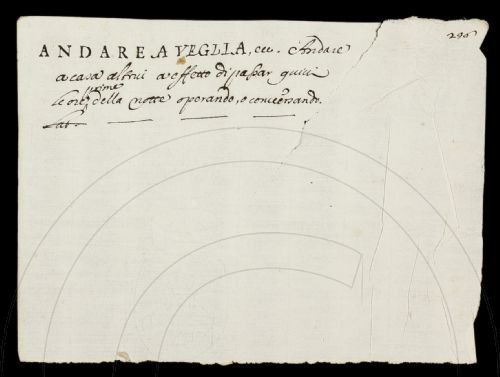 290
ANDARE A VEGLIA, cee. Andare
a casa altrui a effetto di passar quivi
prime
le ore della notte operando, o conversando.
Lat.